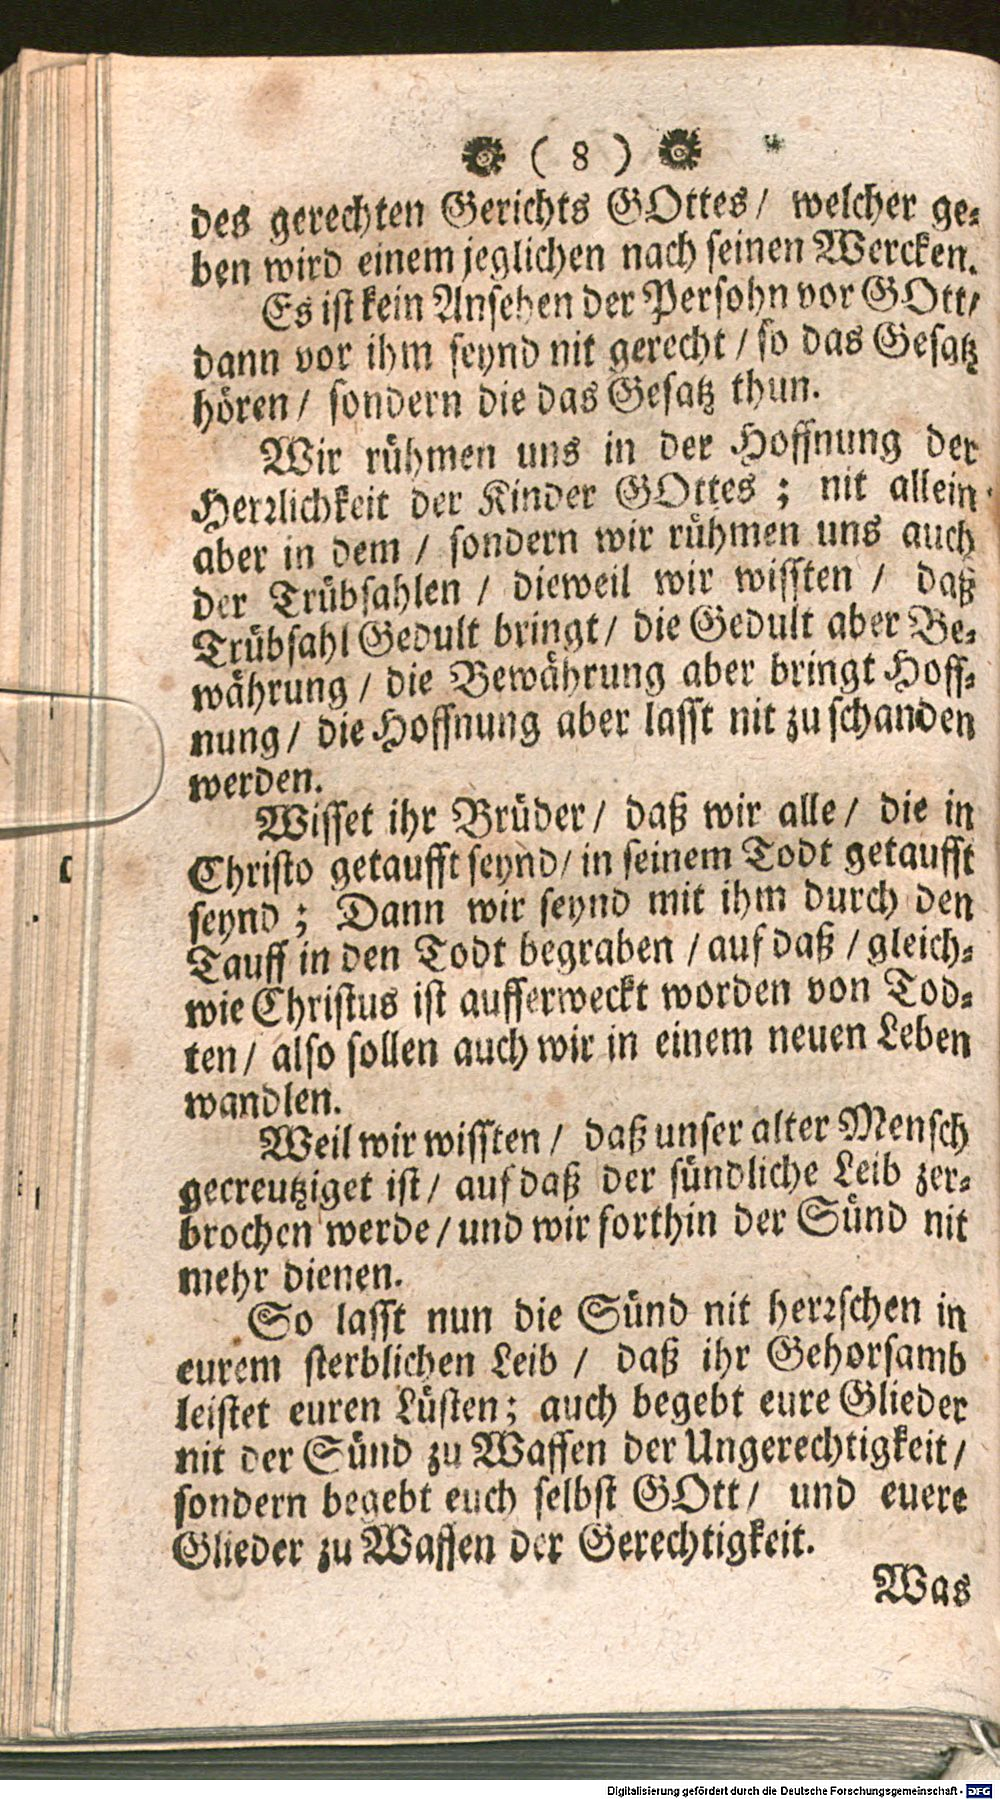 ( 8 )
des gerechten Gerichts GOttes / welcher ge⸗
ben wird einem jeglichen nach seinen Wercken.
Es ist kein Ansehen der Persohn vor GOtt /
dann vor ihm seynd nit gerecht / so das Gesatz
hören / sondern die das Gesatz thun.
Wir rühmen uns in der Hoffnung der
Herꝛlichkeit der Kinder GOttes ; nit allein
aber in dem / sondern wir rühmen uns auch
der Trübsahlen / dieweil wir wissten / daß
Trübsahl Gedult bringt / die Gedult aber Be⸗
währung / die Bewährung aber bringt Hoff⸗
nung / die Hoffnung aber lasst nit zu schanden
werden.
Wisset ihr Brüder / daß wir alle / die in
Christo getaufft seynd / in seinem Todt getaufft
seynd ; Dann wir seynd mit ihm durch den
Tauff in den Todt begraben / auf daß / gleich⸗
wie Christus ist aufferweckt worden von Tod⸗
ten / also sollen auch wir in einem neuen Leben
wandlen.
Weil wir wissten / daß unser alter Mensch
gecreutziget ist / auf daß der sündliche Leib zer⸗
brochen werde / und wir forthin der Sünd nit
mehr dienen.
So lasst nun die Sünd nit herꝛschen in
eurem sterblichen Leib / daß ihr Gehorsamb
leistet euren Lüsten ; auch begebt eure Glieder
nit der Sünd zu Waffen der Ungerechtigkeit /
sondern begebt euch selbst GOtt / und euere
Glieder zu Waffen der Gerechtigkeit.
Was
Digitalisierung gefördert durch die Deutsche Forschungsgemeinschaft - DFG